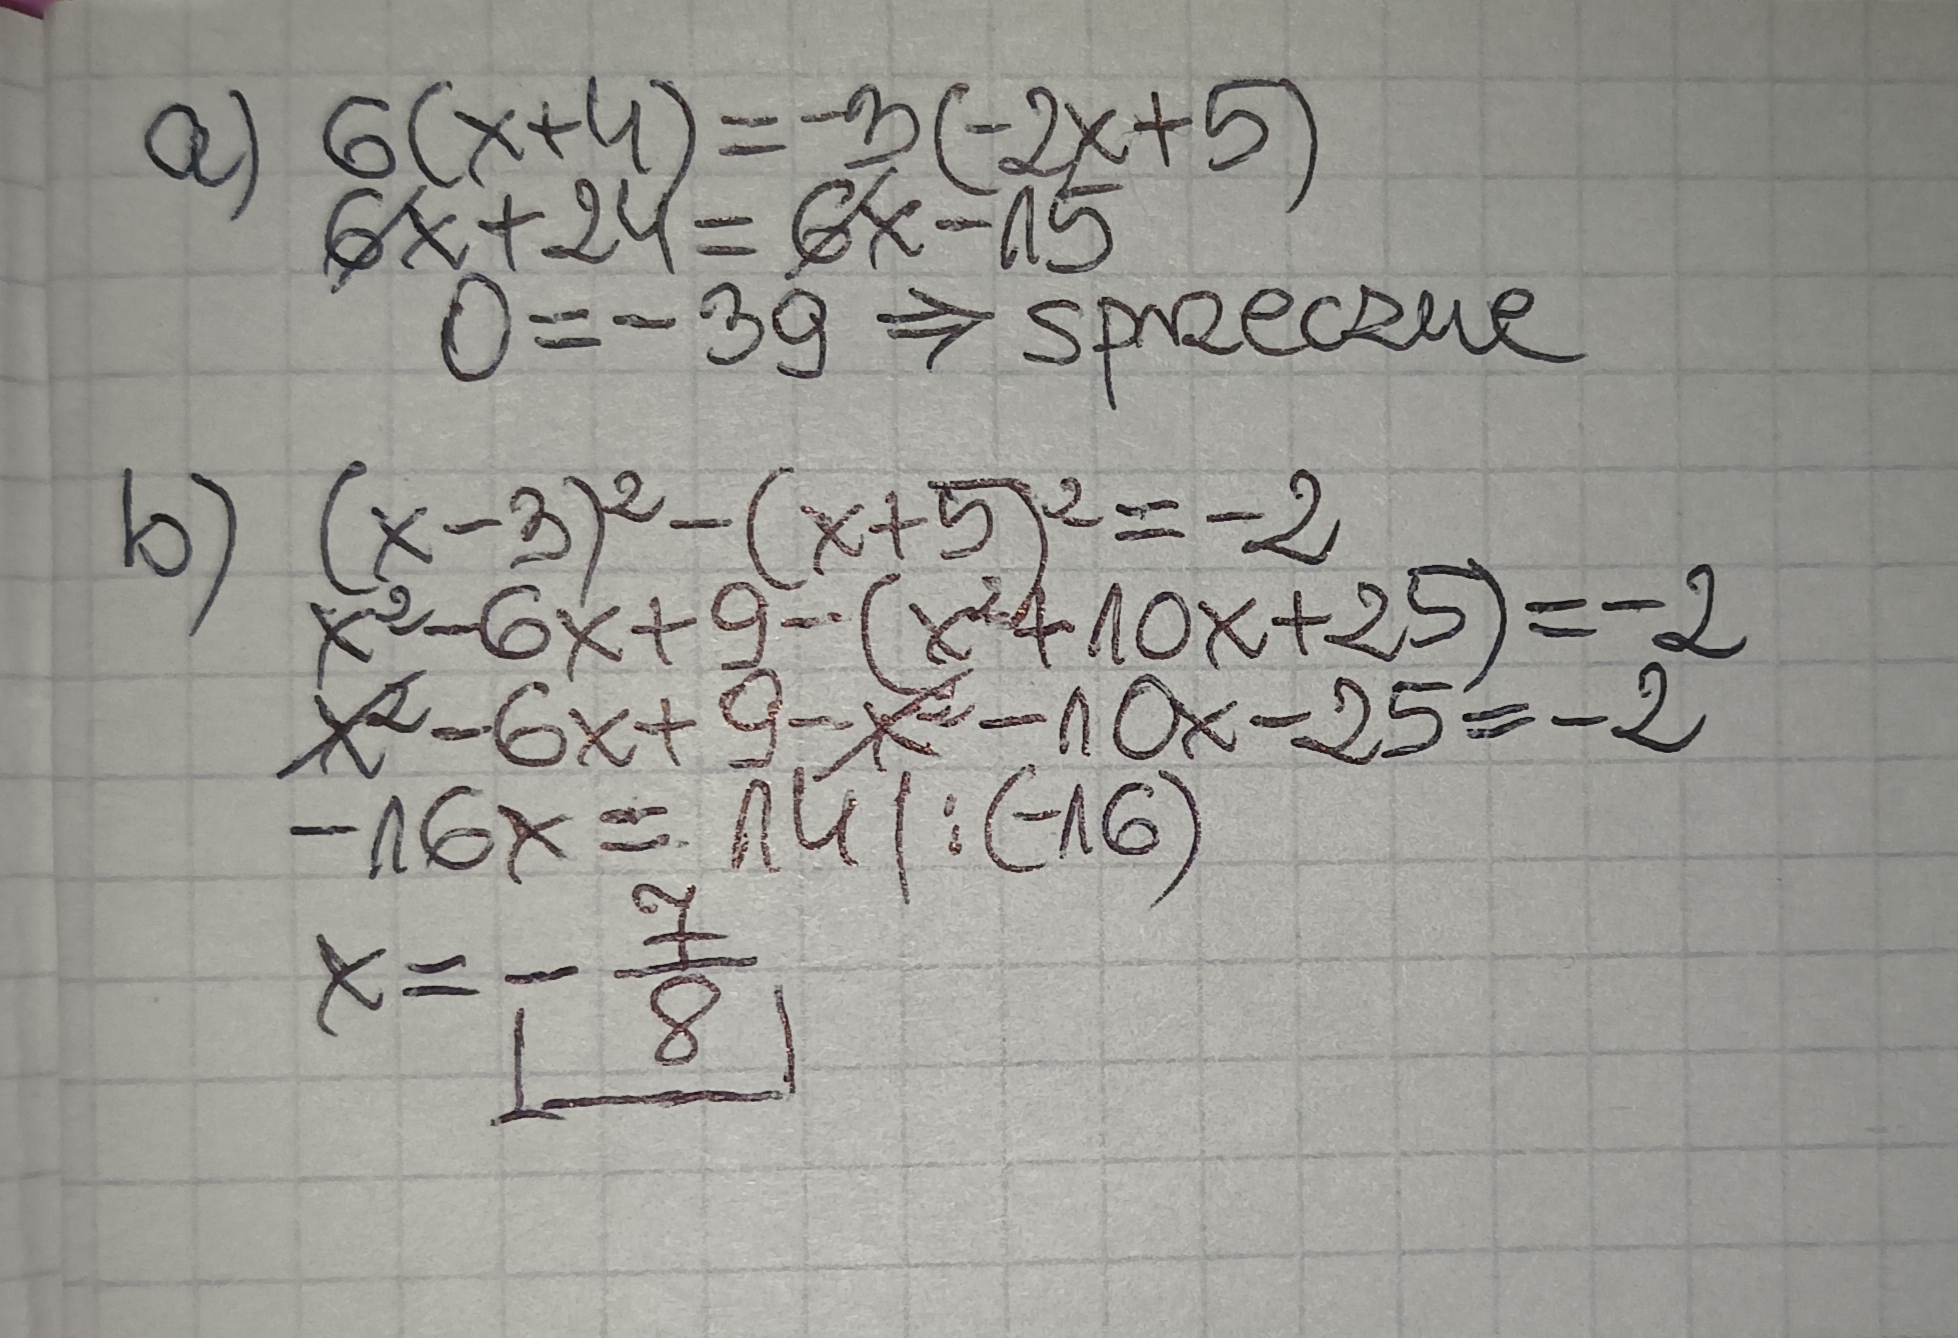 a) 6(x+4)=-3(-2x+5)
6x+24=6x-15
0=-39 ⇒ sprzeczne
b) (x-3)²-(x+5)²=-2
x²-6x+9-(x²+10x+25)=-2
x²-6x+9-x²-10x-25=-2
-16x=14 |:(-16)
x=-7/8